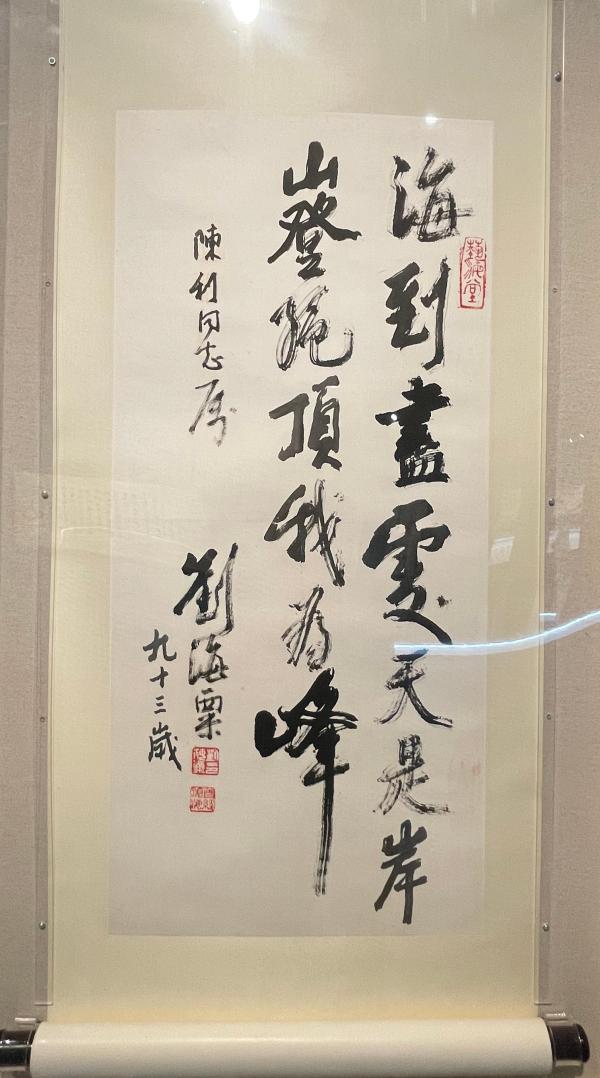 海到盡處天是岸
山登絶頂我為峰
陳利同志属
劉海粟
九十三歲